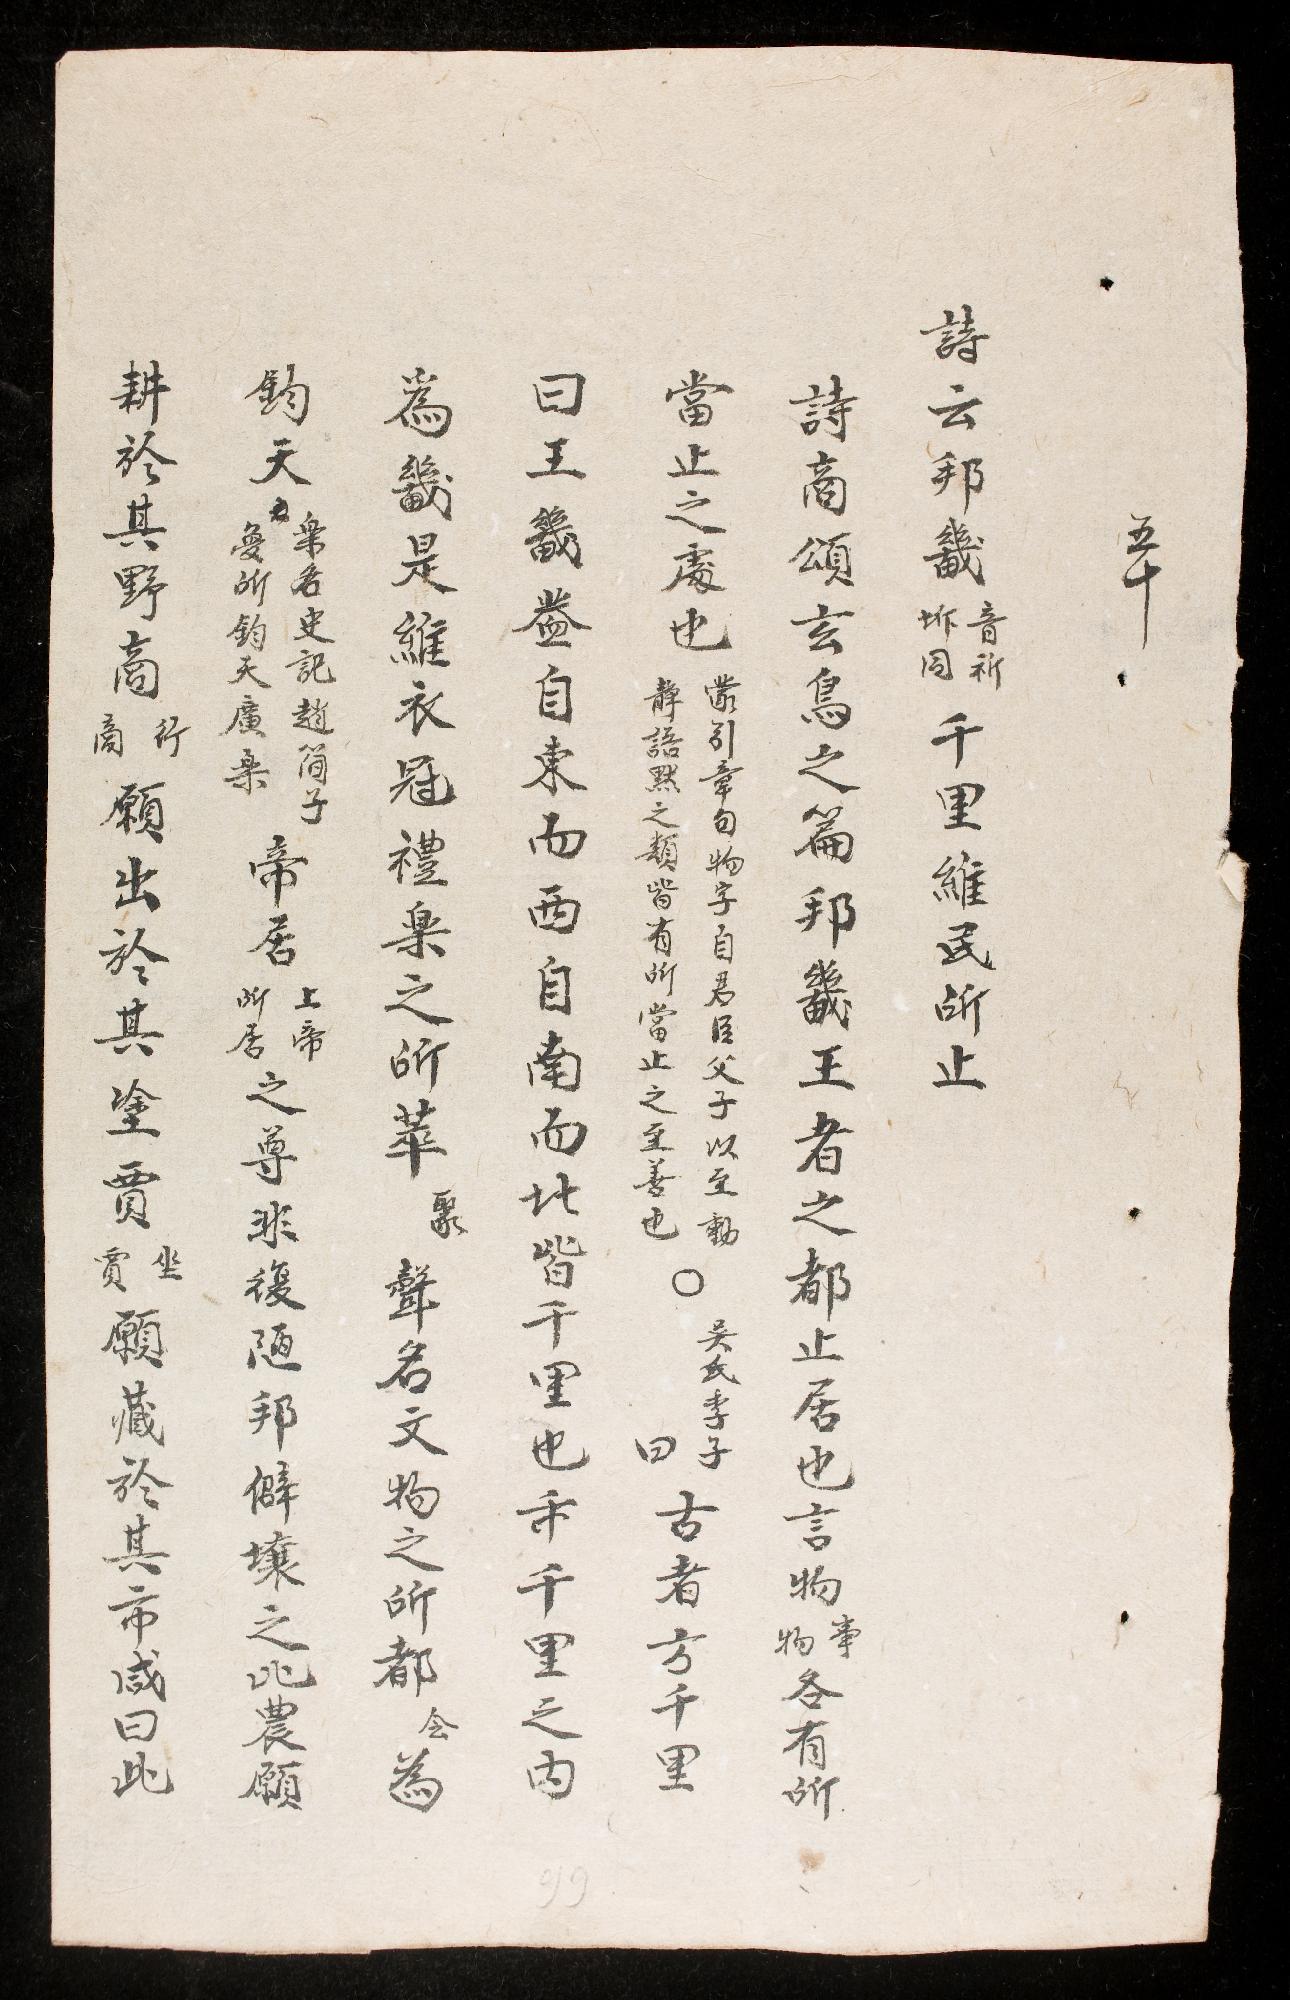 五十
詩云邦畿音祈坼同千里維民所止
詩商頌玄鳥之篇邦畿王者之都止居也言物事物各有所
當止之處也叢引章句物字自君臣父子以至動靜語默之類皆有所當止之至善也○吳氏季子曰古者方千里
曰王畿益自東而西自南而北皆千里也千里之內
為畿是維衣冠禮樂之所萃聚聲名文物之所都会為
鈞天名樂名史記趙簡子夢所鈞天廣樂帝居上帝所居之尊非復陋邦僻壤之比農願
耕於其野商行商願出於其塗賈坐賈願藏於其市咸曰此
99